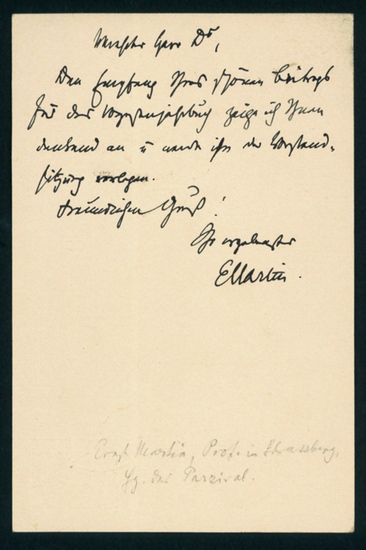 Verehrter Herr Dr,
Den Empfang Ihres schönen Beitrags
für das Vogesenjahrbuch zeige ich Ihnen
dankend an u werde ihn der Vorstand-
sitzung vorlegen.
Freundlichen Gruß!
Ihr ergebenster
EMartin.
Ernst Martin, Prof. in Strassburg,
Hg. des Parzival.